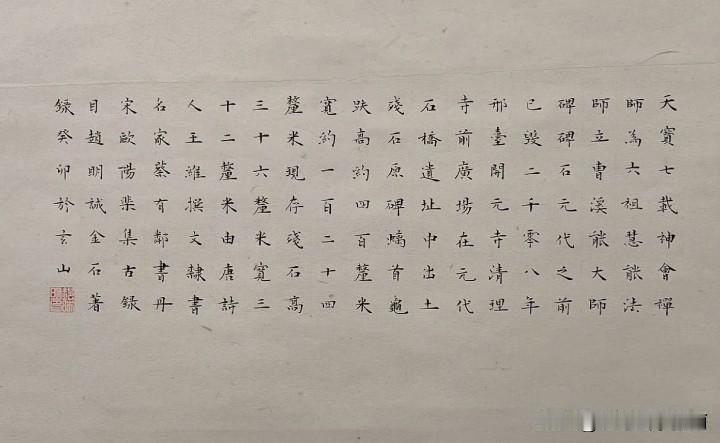 天寶七載神會禪
師為六祖慧能法
師立曹溪能大師
碑碑石元代之前
已毀二千零八年
邢臺開元寺清理
寺前廣場在元代
石橋遺址中出土
殘石原碑螭首龜
趺高約四百釐米
寬約一百二十四
釐米現存殘石高
三十六釐米寬三
十二釐米由唐詩
人王維撰文隸書
名家蔡有鄰書丹
宋歐陽棐集古錄
目趙明誠金石著
錄癸卯於玄山